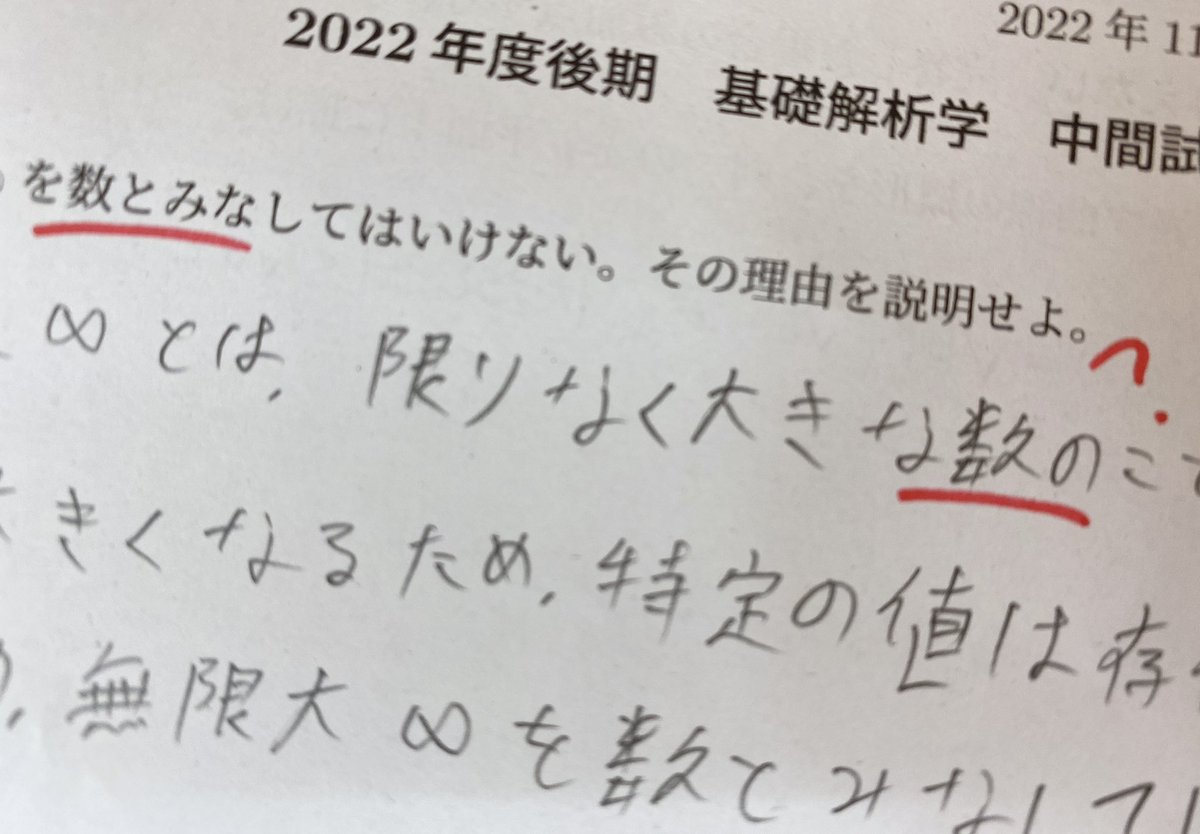 2022 年 11
2022 年度後期 基礎解析学 中間試
を数とみなしてはいけない。その理由を説明せよ。
?
∞ とは, 限りなく大きな数のこ
きくなるため, 特定の値は存
, 無限大 ∞ を数とみなして